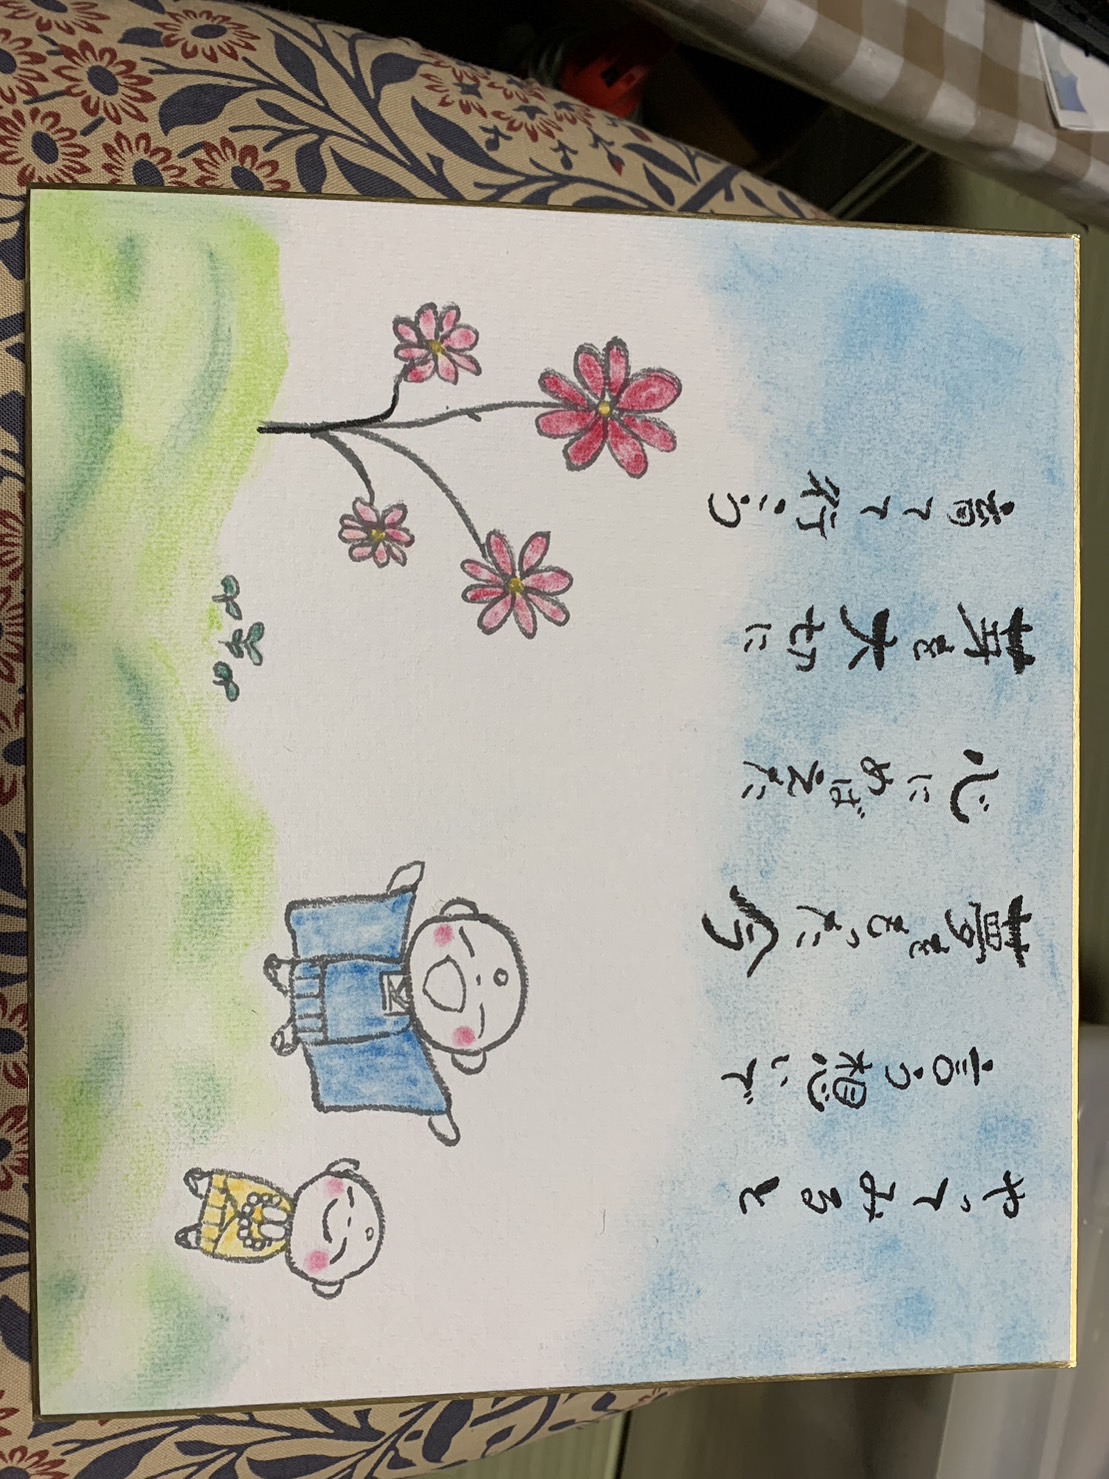 やってみると
言う想いで
夢をもった今
心にめばえた
芽を大切に
育てて行こう